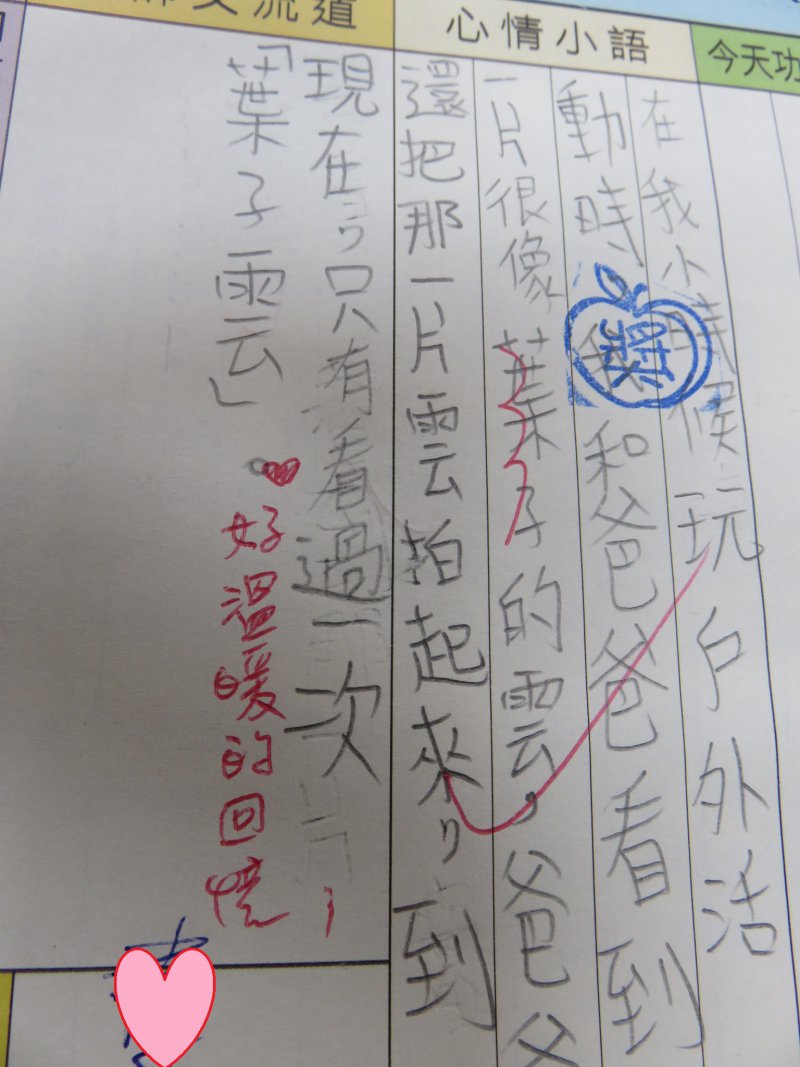 流道
心情小語
今天功
在我小時候玩戶外活
動時我和爸爸看到
一片很像葉子的雲，爸爸
還把那一片雲拍起來，到
現在，只有看過一次
「葉子雲」
好溫暖的回憶